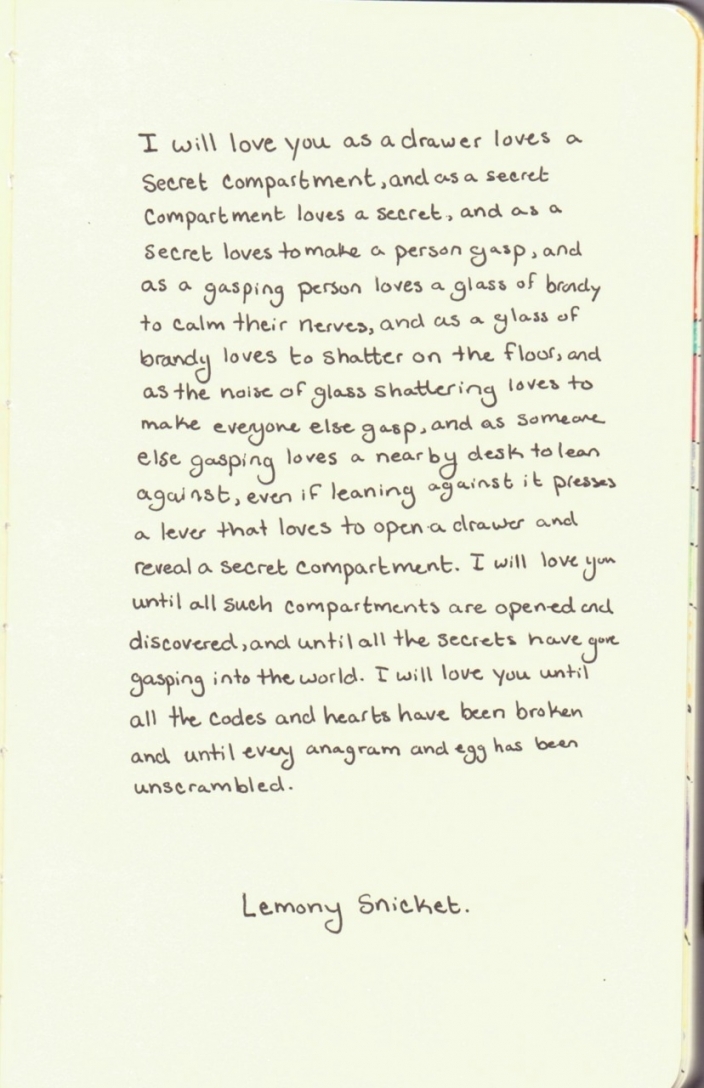 I will love you as a drawer loves a
Secret compartment, and as a secret
Compartment loves a secret, and as a
Secret loves to make a person gasp, and
as a gasping person loves a glass of brandy
to calm their nerves, and as a glass of
brandy loves to shatter on the floor, and
as the noise of glass shattering loves to
make everyone else gasp, and as someone
else gasping loves a nearby desk to lean
against, even if leaning against it presses
a lever that loves to open a drawer and
reveal a secret compartment. I will love you
until all such compartments are opened and
discovered, and until all the secrets have gone
gasping into the world. I will love you until
all the codes and hearts have been broken
and until every anagram and egg has been
unscrambled.
Lemony Snicket.